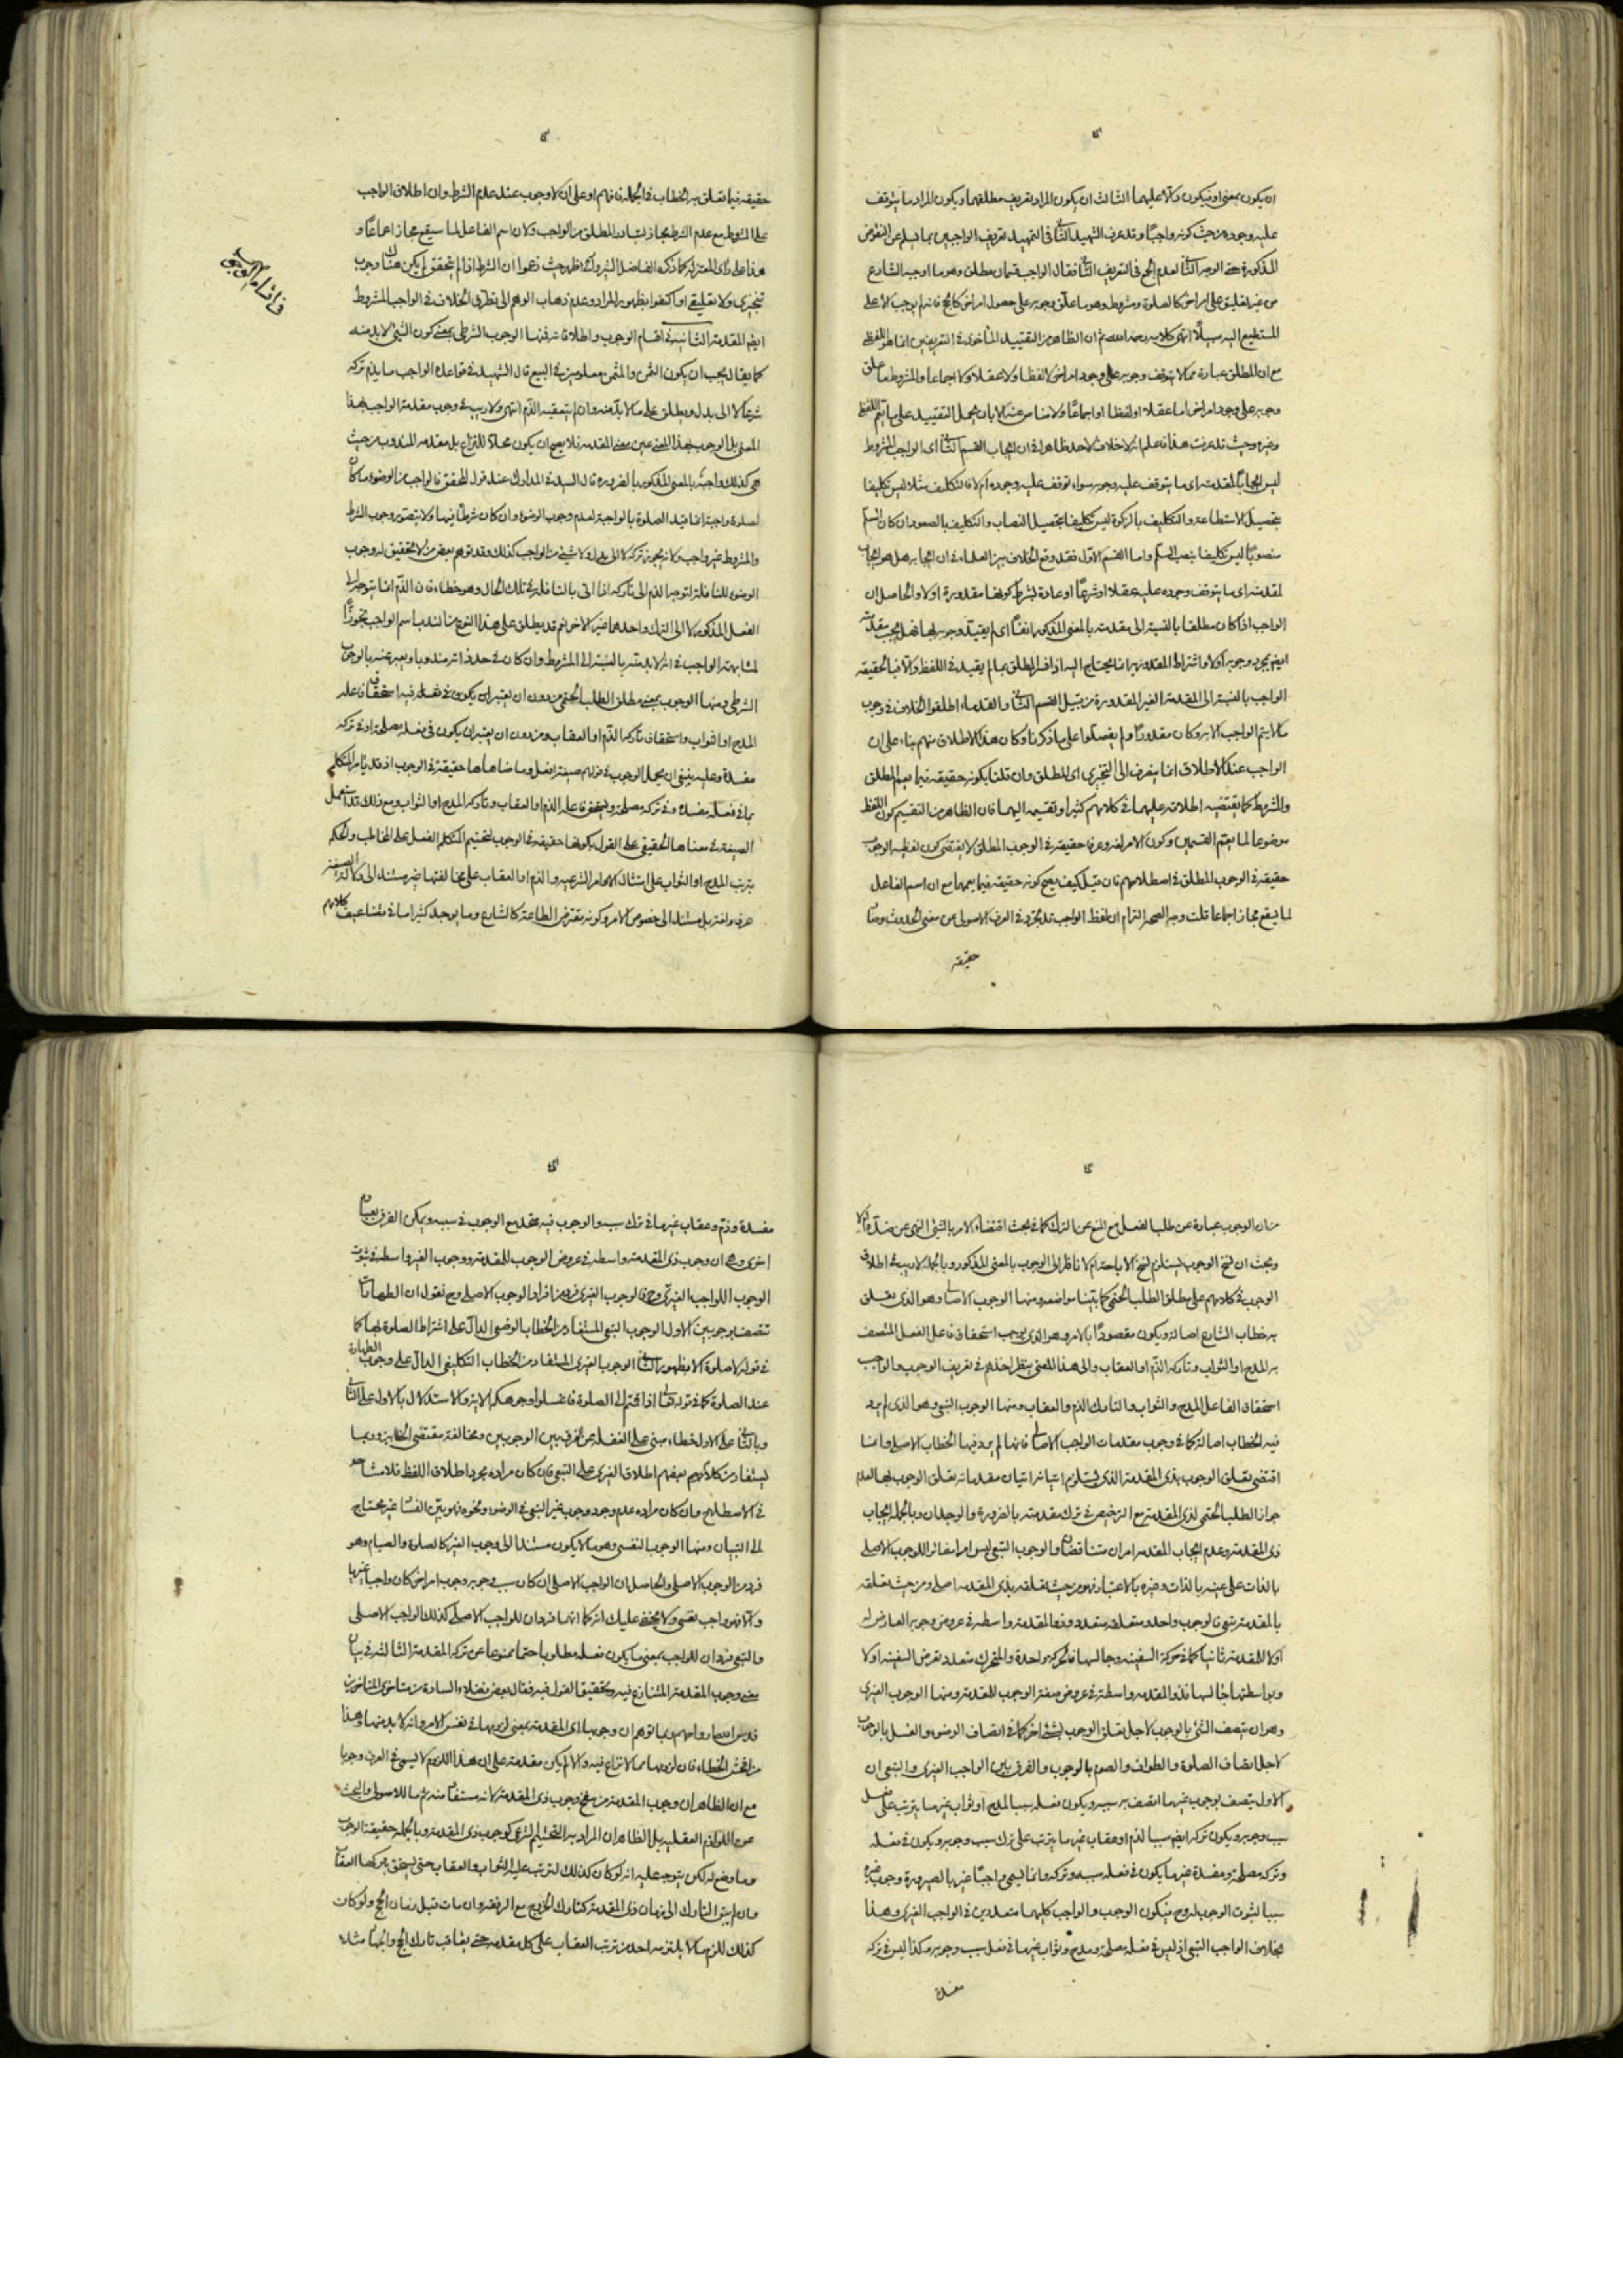 ان يكون بمعنى او فيكون دالا عليهما الثالث ان يكون المراد تعريف مطلقهما ويكون المراد ما يتوقف
عليه وجوده من حيث كونه واجبا وقد عرف الشهيد الثانى فى التمهيد تعريف الواجبين بما يسلم عن النقوض
المذكورة حتى الوجه الثانى لعدم الجمع فى التعريف الثانى فقال الواجب قسمان مطلق وهو ما اوجبه الشارع
من غير تعليق على امر اخر كالصلوة ومشروط وهو ما علق وجوبه على حصول امر اخر كالحج فانه لم يوجب الا على
المستطيع اليه سبيلا انتهى كلامه رحمه الله ثم ان الظاهر من التقييد المأخوذ فى التعريفين انما هو اللفظى
مع ان المطلق عبارة عما لا يتوقف وجوبه على وجود امر اخر لا لفظا ولا عقلا ولا اجماعا والمشروط ما علق
وجوبه على وجود امر اخر اما عقلا او لفظا او اجماعا ولا مناص عنه الا بان يحمل التقييد على ما يعم اللفظ
وغيره وحيث قد عرفت هذا فاعلم انه لا خلاف لاحد ظاهرا فى ان ايجاب القسم الثانى اى الواجب المشروط
ليس ايجابا لمقدمته اى ما يتوقف عليه وجوبه سواء توقف عليه وجوده ام لا فالتكليف مثلا ليس تكليفا
بتحصيل الاستطاعة والتكليف بالزكوة ليس تكليفا بتحصيل النصاب والتكليف بالصعود ان كان السلم
منصوبا ليس تكليفا بنصب السلم واما القسم الاول فقد وقع الخلاف بين العلماء فى ان ايجابه هل هو ايجاب
لمقدمته اى ما يتوقف وجوده عليه عقلا او شرعا او عادة بشرط كونها مقدورة اولا والحاصل ان
الواجب اذا كان مطلقا بالنسبة الى مقدمته بالمعنى المذكور انفا اى لم يقيد وجوبه بها فهل يجب مقدمته
ايضا بمجرد وجوبه اولا واشتراط المقدورية انما يحتاج اليه اذا فسر المطلق بما لم يقيد فى اللفظ والا فبالحقيقة
الواجب بالنسبة الى المقدمة الغير المقدورة من قبيل القسم الثانى والقدماء اطلقوا الخلاف فى وجوب
ما لا يتم الواجب الا به وكان مقدورا ولم يفصلوا على ما ذكرنا وكان هذا الاطلاق منهم بناء على ان
الواجب عند الاطلاق انما ينصرف الى التنجيزى اى المطلق وان قلنا بكونه حقيقة فيما يعم المطلق
والمشروط كما يقتضيه اطلاقه عليهما فى كلامهم كثيرا وتقسيمه اليهما فان الظاهر من التقسيم كون اللفظ
موضوعا لما يعم القسمين وكون الامر لغة وعرفا حقيقة فى الوجوب المطلق لا يقتضى كون لفظ الوجوب
حقيقة فى الوجوب المطلق فى اصطلاحهم فان قيل كيف يصح كونه حقيقة فيما يعمهما مع ان اسم الفاعل
لما يقع مجاز اجماعا قلت وجه الصحة التزام ان لفظ الواجب قد تجرد فى العرف الاصولى عن معنى الحدوث وصار
حقيقة
حقيقة فيما تعلق به الخطاب فى الجملة فافهم او على ان لا وجوب عند عدم الشرط وان اطلاق الواجب
على المشروط مع عدم الشرط مجاز لتبادر المطلق من الواجب ولان اسم الفاعل لما سيقع مجاز اجماعا و
هذا على راى المعتزلة كما ذكره الفاضل الشيروانى اظهر حيث زعموا ان الشرط اذا لم يتحقق لم يكن هناك وجوب
تنجيزى ولا تعليقى او اكتفوا بظهور المراد وعدم ذهاب الوهم الى تطرق الخلاف فى الواجب المشروط
ايضا المقدمة الثانية فى اقسام الوجوب واطلاقاته فمنها الوجوب الشرطى بمعنى كون الشئ لا بد منه
كما يقال يجب ان يكون الثمن والمثمن معلومين فى البيع قال الشهيد فى قواعده الواجب ما يذم تركه
شرعا لا الى بدل ويطلق على ما لا بد منه وان لم يتعقبه الذم انتهى ولا ريب فى وجوب مقدمة الواجب بهذا
المعنى بل الوجوب بهذا المعنى عين معنى المقدمة فلا يصح ان يكون محلا للنزاع بل مقدمة المندوب من حيث
هى كذلك واجبة بالمعنى المذكور بالضرورة قال السيد فى المدارك عند قول المحقق فالواجب من الوضوء ما كان
لصلوة واجبة انما قيد الصلوة بالواجبة لعدم وجوب الوضوء وان كان شرطا فيها ولا يتصور وجوب الشرط
والمشروط غير واجب ولانه يجوز تركه لا الى بدل ولا شئ من الواجب كذلك وقد توهم بعض من لا تحقيق له وجوب
الوضوء للنافلة لتوجه الذم الى تاركه اذا اتى بالنافلة فى تلك الحال وهو خطاء فان الذم انما يتوجه الى
الفعل المذكور لا الى الترك واحدهما غير الاخر نعم قد يطلق على هذا النوع من الندب اسم الواجب تجوزا
لمشابهته الواجب فى انه لا بد منه بالنسبة الى المشروط وان كان فى حد ذاته مندوبا ويعبر عنه بالوجوب
الشرطى ومنها الوجوب بمعنى مطلق الطلب الحتمى من دون ان يعتبر ان يكون فى فعله فيه استحقاق فاعله
المدح او الثواب واستحقاق تاركه الذم او العقاب ومن دون ان يعتبر ان يكون فى فعله مصلحة او فى تركه
مفسدة وعليه ينبغى ان يحمل الوجوب فى قولهم صيغة افعل وما ضاهاها حقيقة فى الوجوب اذ قد يامر المتكلم
بما فى فعله مفسدة وفى تركه مصلحة ويستحق فاعله الذم او العقاب وتاركه المدح او الثواب ومع ذلك قد استعمل
الصيغة فى معناها الحقيقى على القول بكونها حقيقة فى الوجوب لتحتيم المتكلم الفعل على المخاطب والحكم
بترتب المدح او الثواب على امتثال الاوامر الشرعية والذم او العقاب على مخالفتها غير مستند الى دلالة الصيغة
عرفا ولغة بل مستند الى خصوص الامر وكونه مفترض الطاعة كالشارع وما يوجد كثيرا ما فى تضاعيف كلامهم
فى اقسام الوجوب
من ان الوجوب عبارة عن طلب الفعل مع المنع عن الترك كما فى بحث اقتضاء الامر بالشئ النهى عن ضده ام لا
وبحث ان نسخ الوجوب يستلزم نسخ الاباحة ام لا ناظر الى الوجوب بالمعنى المذكور وبالجملة لا ريب فى اطلاق
الوجوب فى كلامهم على مطلق الطلب الحتمى كما بينا مواضعه ومنها الوجوب الاصلى وهو الذى تعلق
به خطاب الشارع اصالة ويكون مقصودا بالامر وهو الذى يوجب استحقاق فاعل الفعل المتصف
به المدح او الثواب وتاركه الذم او العقاب والى هذا المعنى ينظر اخذهم فى تعريف الوجوب والواجب
استحقاق الفاعل المدح والثواب والتارك الذم والعقاب ومنها الوجوب التبعى وهو الذى لم يرد
فيه الخطاب اصالة كما فى وجوب مقدمات الواجب الاصلى فانها لم يرد فيها الخطاب الاصلى وانما
اقتضى تعلق الوجوب بذى المقدمة الذى يستلزم اتيانه اتيان مقدماته تعلق الوجوب بها لعدم
جواز الطلب الحتمى لذى المقدمة مع الترخيص فى ترك مقدمته بالضرورة والوجدان وبالجملة ايجاب
ذى المقدمة وعدم ايجاب المقدمة امران متناقضان والوجوب التبعى ليس امرا مغايرا للوجوب الاصلى
بالذات على عينه بالذات وغيره بالاعتبار فهو من حيث تعلقه بذى المقدمة اصلى ومن حيث تعلقه
بالمقدمة تبعى فالوجوب واحد ومتعلقه متعدد وذو المقدمة واسطة فى عروض وجوبه العارض له
اولا للمقدمة ثانيا كما فى حركة السفينة وجالسها فالحركة واحدة والمتحرك متعدد تعرض السفينة اولا
وبواسطتها جالسها فذو المقدمة واسطة فى عروض صفة الوجوب للمقدمة ومنها الوجوب الغيرى
وهو ان يتصف الشئ بالوجوب لاجل تعلق الوجوب بشئ اخر كما فى اتصاف الوضوء والغسل بالوجوب
لاجل اتصاف الصلوة والطواف والصوم بالوجوب والفرق بين الواجب الغيرى والتبعى ان
الاول يتصف بوجوب غيرما اتصف به سببه ويكون فعله سببا لمدح او ثواب غيرما يترتب على فعل
سبب وجوبه ويكون تركه ايضا سببا لذم او عقاب غيرما يترتب على ترك سبب وجوبه ويكون فى فعله
وتركه مصلحة ومفسدة غيرما يكون فى فعل سببه وتركه وانما يسمى واجبا غيريا لصيرورة وجوب غيره
سببا لثبوت الوجوب له وح فيكون الوجوب والواجب كليهما متعددين فى الواجب الغيرى وهذا
بخلاف الواجب التبعى اذ ليس فى فعله مصلحة ومدح وثواب غيرما فى فعل سبب وجوبه وكذا ليس فى تركه
مفسدة
مفسدة وذم وعقاب غيرما فى ترك سببه والوجوب فيه متحد مع الوجوب فى سببه ويمكن الفرق بعبارة
اخرى وهى ان وجوب ذى المقدمة واسطة فى عروض الوجوب للمقدمة ووجوب الغير واسطة فى ثبوت
الوجوب للواجب الغيرى وح فالوجوب الغيرى فرد من افراد الوجوب الاصلى وح نقول ان الطهارة
تتصف بوجوبين الاول الوجوب التبعى المستفاد من الخطاب الوضعى الدال على اشتراط الصلوة بها كما
فى قوله لا صلوة الا بطهور الثانى الوجوب الغيرى المستفاد من الخطاب التكليفى الدال على وجوب الطهارة
عند الصلوة كما فى قوله تعالى اذا قمتم الى الصلوة فاغسلوا وجوهكم الاية والاستدلال بالاول على الثانى
وبالثانى على الاول خطاء مبنى على الغفلة عن الفرق بين الوجوبين ومخالفة مقتضى الخطابين وربما
يستفاد من كلام بعضهم اطلاق الغيرى على التبعى فان كان مراده مجرد اطلاق اللفظ فلا مشاحة
فى الاصطلاح وان كان مراده عدم وجود وجوب غير التبعى فى الوضوء ونحوه فهو بين الفساد غير محتاج
الى التبيان ومنها الوجوب النفسى وهو ما لا يكون مستندا الى وجوب الغير كالصلوة والصيام وهو
فرد من الوجوب الاصلى والحاصل ان الواجب الاصلى ان كان سبب وجوبه وجوب امر اخر كان واجبا غيريا
والا فهو واجب نفسى ولا يخفى عليك انه كما انهما فردان للواجب الاصلى كذلك الواجب الاصلى
والتبعى فردان للواجب بمعنى ما يكون فعله مطلوبا حتما ممنوعا عن تركه المقدمة الثالثة فى بيان
معنى وجوب المقدمة المتنازع فيه وتحقيق القول فيه فقال بعض فضلاء السادة من متاخرى المتاخرين
قدس الله ارواحهم ربما توهم ان وجوبها اى المقدمة بمعنى لزومها فى نفس الامر وانه لا بد منها وهذا
من افحش الخطاء فان لزومها مما لا نزاع فيه والا لم يكن مقدمة على ان هذا اللزوم لا يسمى فى العرف وجوبا
مع ان الظاهر ان وجوب المقدمة من سنخ وجوب ذى المقدمة لانه مستفاد منه ثم ما للاصولى والبحث
عن اللوازم العقلية بل الظاهر ان المراد به التحتيم الشرعى كوجوب ذى المقدمة وبالجملة حقيقة الوجوب
وما وضع له لكن يتوجه عليه انه لو كان كذلك لترتب عليه الثواب والعقاب حتى يستحق بتركها العقاب
وان لم يتبين التارك الى زمان ذى المقدمة كتارك الخروج مع الرفقة وان مات قبل زمان الحج ولو كان
كذلك للزم ما لا يلتزمه احد من ترتب العقاب على كل مقدمة حتى يعاقب تارك الحج والجهاد مثلا